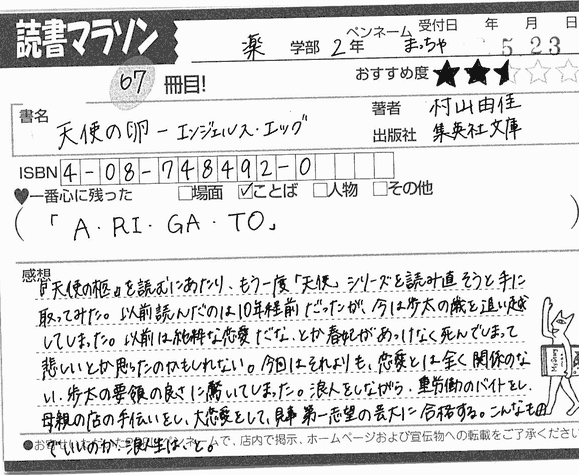 読書マラソン
薬 学部 2年 ペンネーム まっちゃ 受付日 年 月 日 5 23
67 冊目! おすすめ度 ★★
書名 天使の卵-エンジェルス・エッグ
著者 村山由佳
出版社 集英社文庫
ISBN 4-08-748492-0
♥一番心に残った □場面 ☑ことば □人物 □その他
(「A・RI・GA・TO」)
感想
『天使の柩』を読むにあたり、もう一度「天使」シリーズを読み直そうと手に
取ってみた。以前読んだのは10年程前だったが、今は歩太の歳を追い越
してしまった。以前は純粋な恋愛だな、とか春妃があっけなく死んでしまって
悲しいとか思ったのかもしれない。今回はそれよりも、恋愛とは全く関係のな
い、歩太の要領の良さに驚いてしまった。浪人をしながら、重労働のバイトをし、
母親の店の手伝いをし、大恋愛をして、見事第一志望の芸大に合格する。こんなもん
でいいのか、浪人生は、と。
ペンネームで、店内で掲示、ホームページおよび宣伝物への転載をご了承くださ